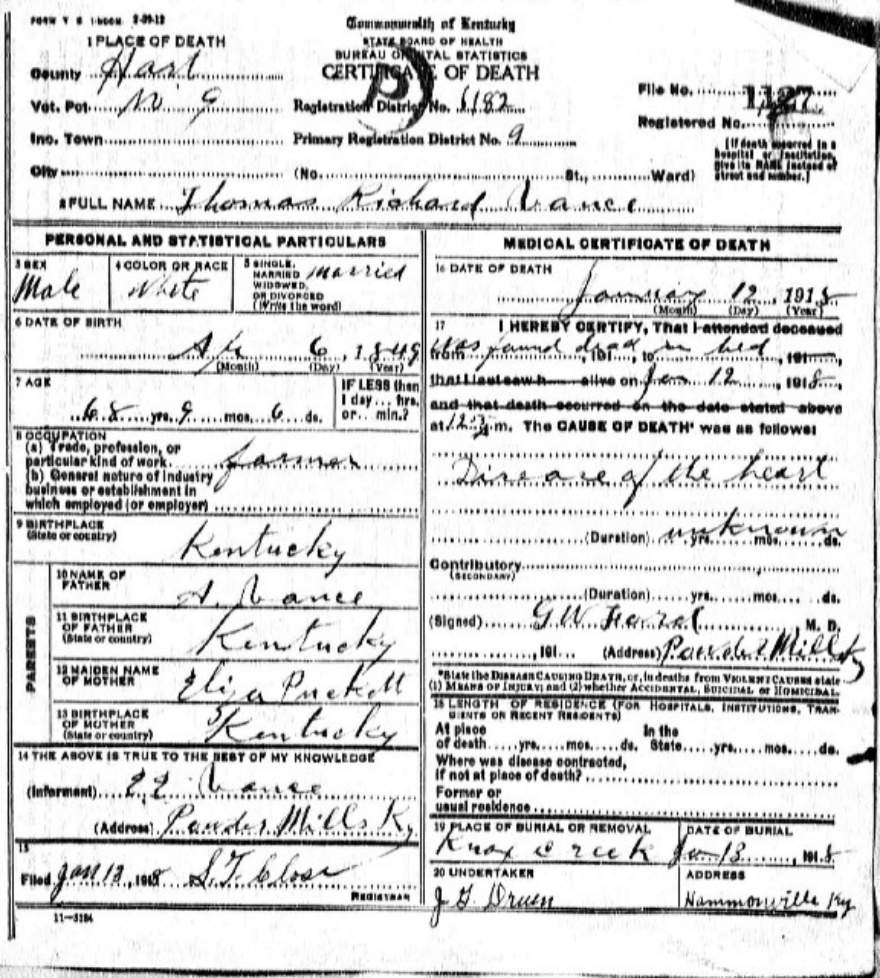 FORM V. S. 1-500M. 2-20-12
Commonwealth of Kentucky
STATE BOARD OF HEALTH
BUREAU OF VITAL STATISTICS
CERTIFICATE OF DEATH
1 PLACE OF DEATH
County Hart
Vot. Pct. No. 9
Registration District No. 1182
File No. 1127
Registered No.
Inc. Town
Primary Registration District No. 9
[If death occurred in a hospital or institution, give its NAME instead of street and number.]
City (No. St., Ward)
2 FULL NAME Thomas Richard Vance
PERSONAL AND STATISTICAL PARTICULARS
3 SEX
Male
4 COLOR OR RACE
White
5 SINGLE, MARRIED WIDOWED, OR DIVORCED (Write the word)
married
6 DATE OF BIRTH
Apr 6, 1849
(Month) (Day) (Year)
7 AGE
68 yrs. 9 mos. 6 ds.
IF LESS than 1 day... hrs. or... min.?
8 OCCUPATION
(a) Trade, profession, or particular kind of work farmer
(b) General nature of industry business or establishment in which employed (or employer)
9 BIRTHPLACE
(State or country) Kentucky
PARENTS
10 NAME OF FATHER
A. Vance
11 BIRTHPLACE OF FATHER
(State or country) Kentucky
12 MAIDEN NAME OF MOTHER
Eliza Puckett
13 BIRTHPLACE OF MOTHER
(State or country) Kentucky
14 THE ABOVE IS TRUE TO THE BEST OF MY KNOWLEDGE
(Informant) Vance
(Address) Powder Mills Ky
15
Filed Jan 13, 1918 S. T. Close
REGISTRAR
11-3184
MEDICAL CERTIFICATE OF DEATH
16 DATE OF DEATH
January 12 1918
(Month) (Day) (Year)
17 I HEREBY CERTIFY, That I attended deceased
from was found dead in bed, 191, to, 191,
that I last saw h alive on Jan 12, 1918,
and that death occurred on the date stated above
at 12 m. The CAUSE OF DEATH* was as follows:
Disease of the heart
(Duration) unknown yrs. mos. ds.
Contributory
(SECONDARY)
(Duration) yrs. mos. ds.
(Signed) G W M. D.
, 191 (Address) Powder Mills Ky
*State the DISEASE CAUSING DEATH, or, in deaths from VIOLENT CAUSES state
(1) MEANS OF INJURY; and (2) whether ACCIDENTAL, SUICIDAL or HOMICIDAL.
18 LENGTH OF RESIDENCE (FOR HOSPITALS, INSTITUTIONS, TRANSIENTS OR RECENT RESIDENTS)
At place of death yrs. mos. ds.
In the State yrs. mos. ds.
Where was disease contracted,
if not at place of death?
Former or
usual residence
19 PLACE OF BURIAL OR REMOVAL
Knox Creek
DATE OF BURIAL
Jan 13, 1918
20 UNDERTAKER
J G Druen
ADDRESS
Hammonville Ky